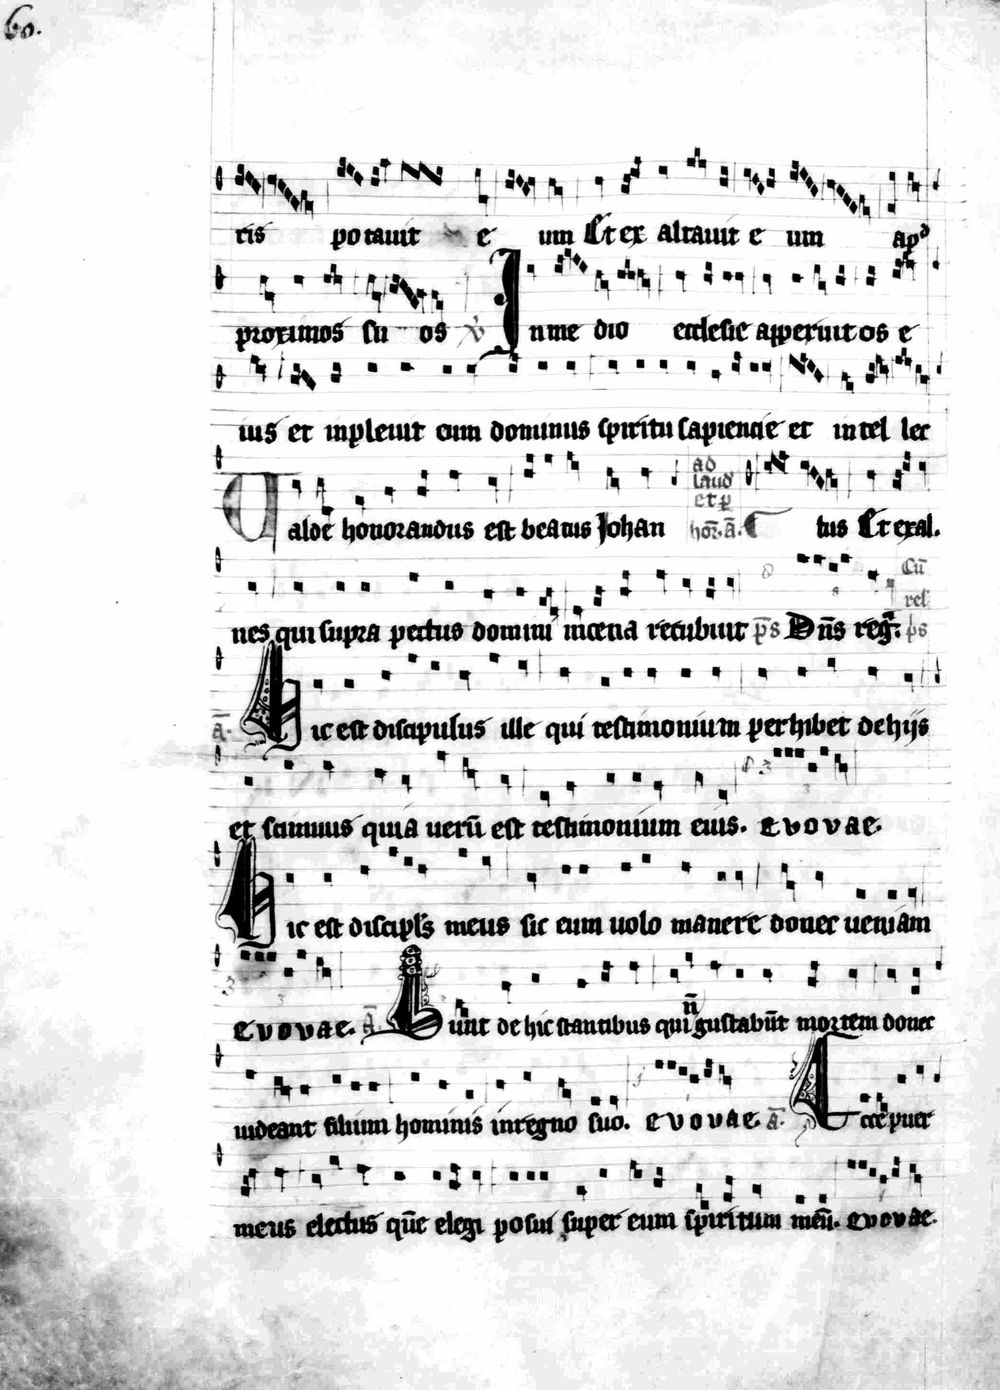 60.
tis potauit e um Et ex altauit e um apd
proximos su os v̄ In me dio ecclesie apperuit os e
ius et inpleuit eum dominus spiritu sapiencie et intel lec
Valde honorandus est beatus Johan ad laud et p hor. a. tus Et exal.
nes qui supra pectus domini incena recubuit p̄s Dn̄s reg. Cū rel p̄s
ā. Hic est discipulus ille qui testimonium perhibet de hijs
et scimus quia uerū est testimonium eius. e v o v a e.
Hic est discipl's meus sic eum uolo manere donec ueniam
e v o v a e. ā. Sunt de hic stantibus qui n̄ gustabūt mortem donec
uideant filium hominis in regno suo. e v o v a e. ā. Ecce puer
meus electus quē elegi posui super eum spiritum meū. e v o v a e.